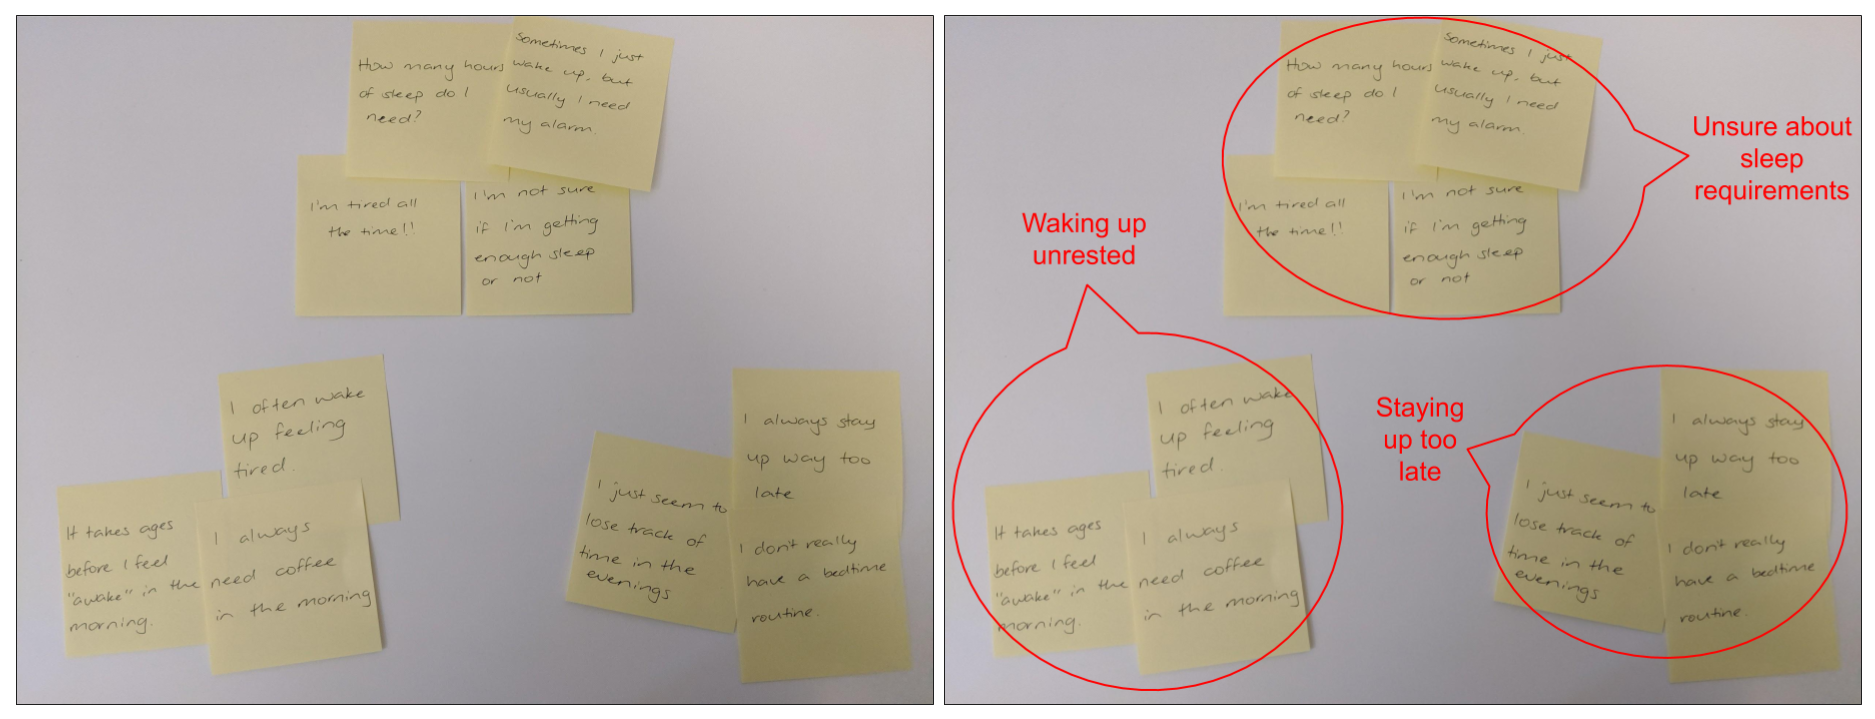 How many hours
of sleep do I
need?
Sometimes I just
wake up, but
usually I need
my alarm.
I'm tired all
the time!!
I'm not sure
if I'm getting
enough sleep
or not
I often wake
up feeling
tired.
It takes ages
before I feel
"awake" in the
morning.
I always
need coffee
in the morning
I just seem to
lose track of
time in the
evenings
I always stay
up way too
late
I don't really
have a bedtime
routine.
How many hours
of sleep do I
need?
Sometimes I just
wake up, but
usually I need
my alarm.
Unsure about
sleep
requirements
I'm tired all
the time!!
I'm not sure
if I'm getting
enough sleep
or not
Waking up
unrested
I often wake
up feeling
tired.
It takes ages
before I feel
"awake" in the
morning.
I always
need coffee
in the morning
Staying
up too
late
I just seem to
lose track of
time in the
evenings
I always stay
up way too
late
I don't really
have a bedtime
routine.